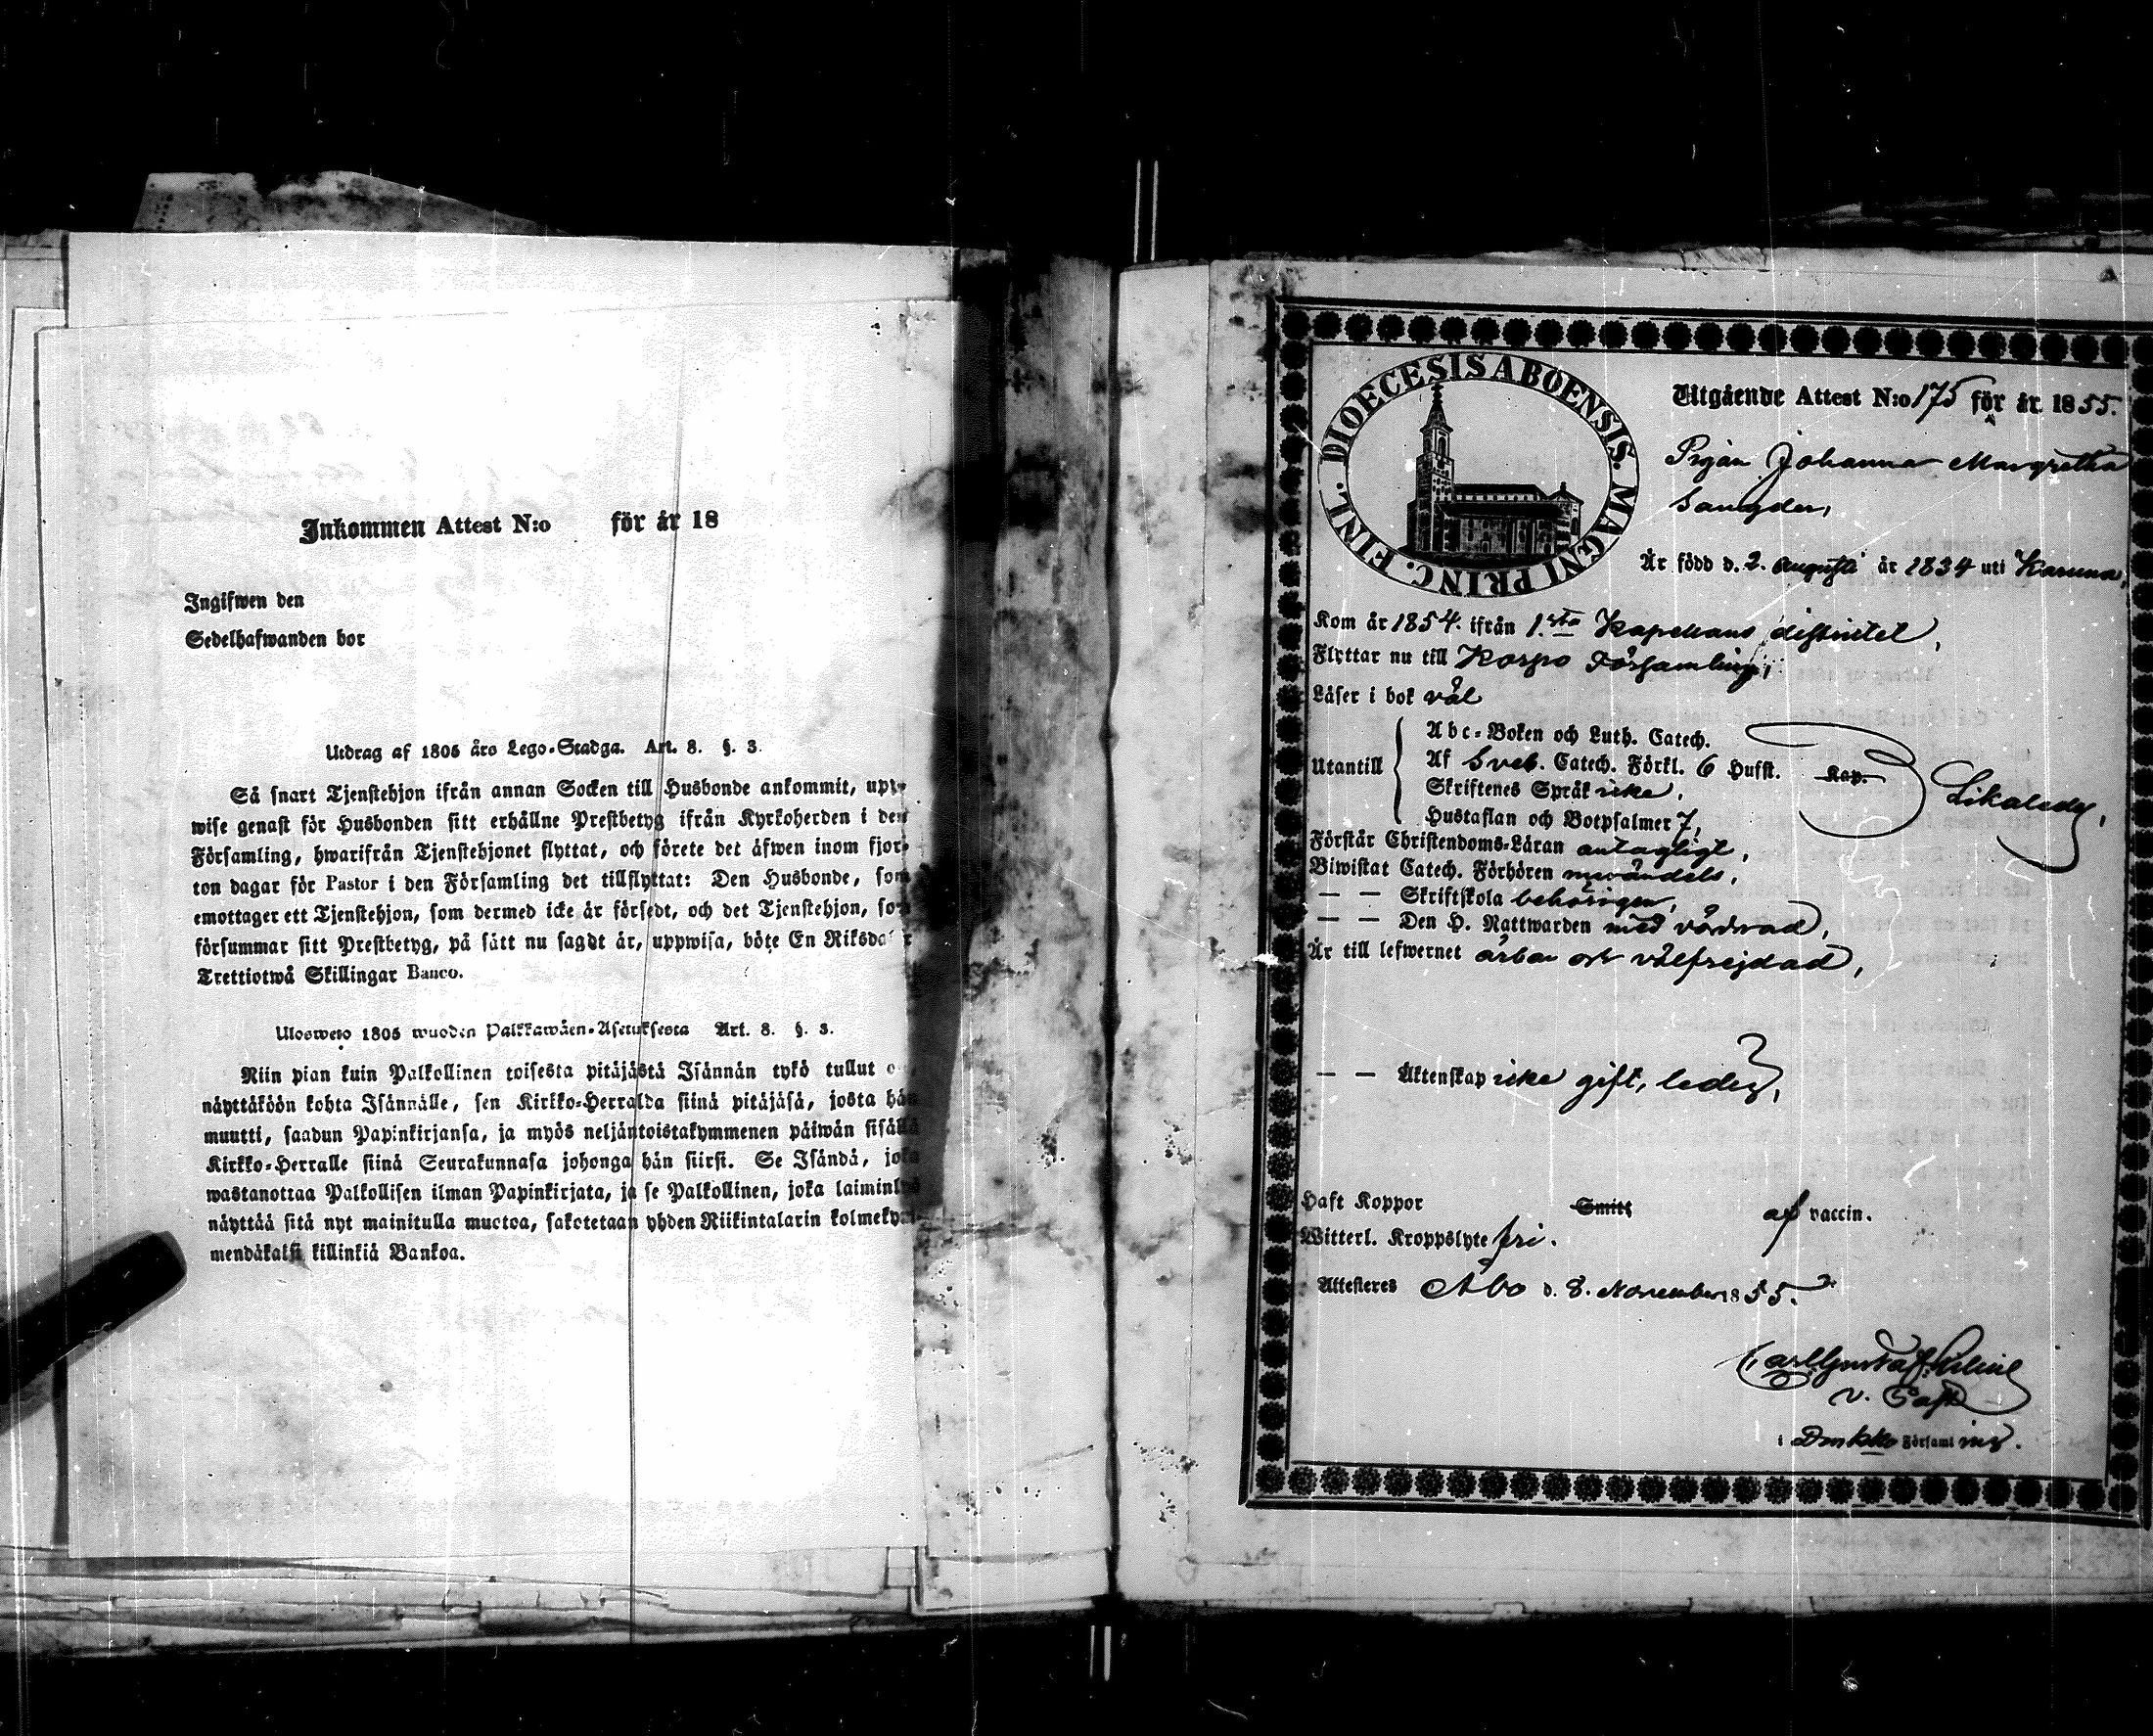 Inkommen Attest N:o för år 18
Ingifwen den
Sedelhafwanden bor
Utdrag af 1805 års Lego-Stadga. Art. 8. §. 3.
Så snart Tjenstehjon ifrån annan Socken till Husbonde ankommit, upp-
wise genast för Husbonden sitt erhållne Prestbetyg ifrån Kyrkoherden i den
Församling, hwarifrån Tjenstehjonet flyttat, och förete det äfwen inom fjor-
ton dagar för Pastor i den Församling det tillflyttat: Den Husbonde, som
emottager ett Tjenstehjon, som dermed icke är försedt, och det Tjenstehjon, som
försummar sitt Prestbetyg, på sätt nu sagdt är, uppwisa, böte En Riksdaler
Trettiotwå Skillingar Banco.
Ulosweto 1805 wuoden Palkkawäen-Asetuksesta Art. 8. §. 3.
Niin pian kuin Palkollinen toisesta pitäjästä Isännän tykö tullut
näyttäköön kohta Isännälle, sen Kirkko-Herralda siinä pitäjäsä, josta hän
muutti, saadun Papinkirjansa, ja myös neljäntoistakymmenen päiwän sisällä
Kirkko-Herralle siinä Seurakunnasa johonga hän siirsi. Se Isändä, joka
wastanottaa Palkollisen ilman Papinkirjata, ja se Palkollinen, joka
näyttää sitä nyt mainitulla muotoa, sakotetaan yhden Riikintalarin
mendäkaksi killinkiä Bankoa.
DIOECESIS ABOENSIS. MAGNI PRINC. FINL.
Utgående Attest N:o 175 för år 1855.
Pigan Johanna Margretha
Är född d. 2 Augusti år 1834 uti Karuna,
Kom år 1854. ifrån 1:sta Kapellans districtet,
Flyttar nu till Korpo Församling,
Läser i bok väl
Utantill
Abc-Boken och Luth. Catech.
Af Sveb. Catech. Förkl. 6 Hufst. Kap.
Skriftenes Språk icke,
Hustaflan och Botpsalmer 7,
Likaledes,
Förstår Christendoms-Läran antagligt,
Biwistat Catech. Förhören
— — Skriftskola behörigen,
— — Den H. Nattwarden med vördnad,
Är till lefwernet ärbar och välfrejdad,
— — Äktenskap icke gift, ledig,
Haft Koppor Smitt af vaccin.
Witterl. Kroppslyte fri.
Attesteres Åbo d. 8. November 1855.
Carl Gustaf
v. Past
i Församl ing.